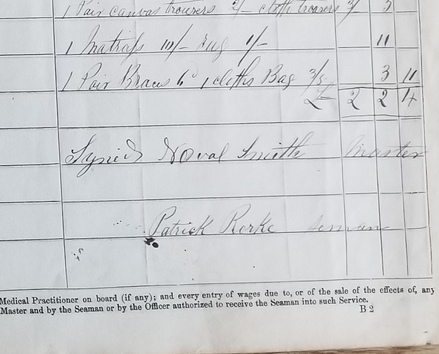 1 Pair canvas trousers 2/- cloth trousers 3/ 5
1 Matrass 10/- Rug 1/- 11
1 Pair Braces 6d 1 cloths Bag 3/5 3 11
£ 2 2 4
Signed Noval Smith Master
Patrick Rorke seman
Medical Practitioner on board (if any); and every entry of wages due to, or of the sale of the effects of, any
Master and by the Seaman or by the Officer authorized to receive the Seaman into such Service.
B 2